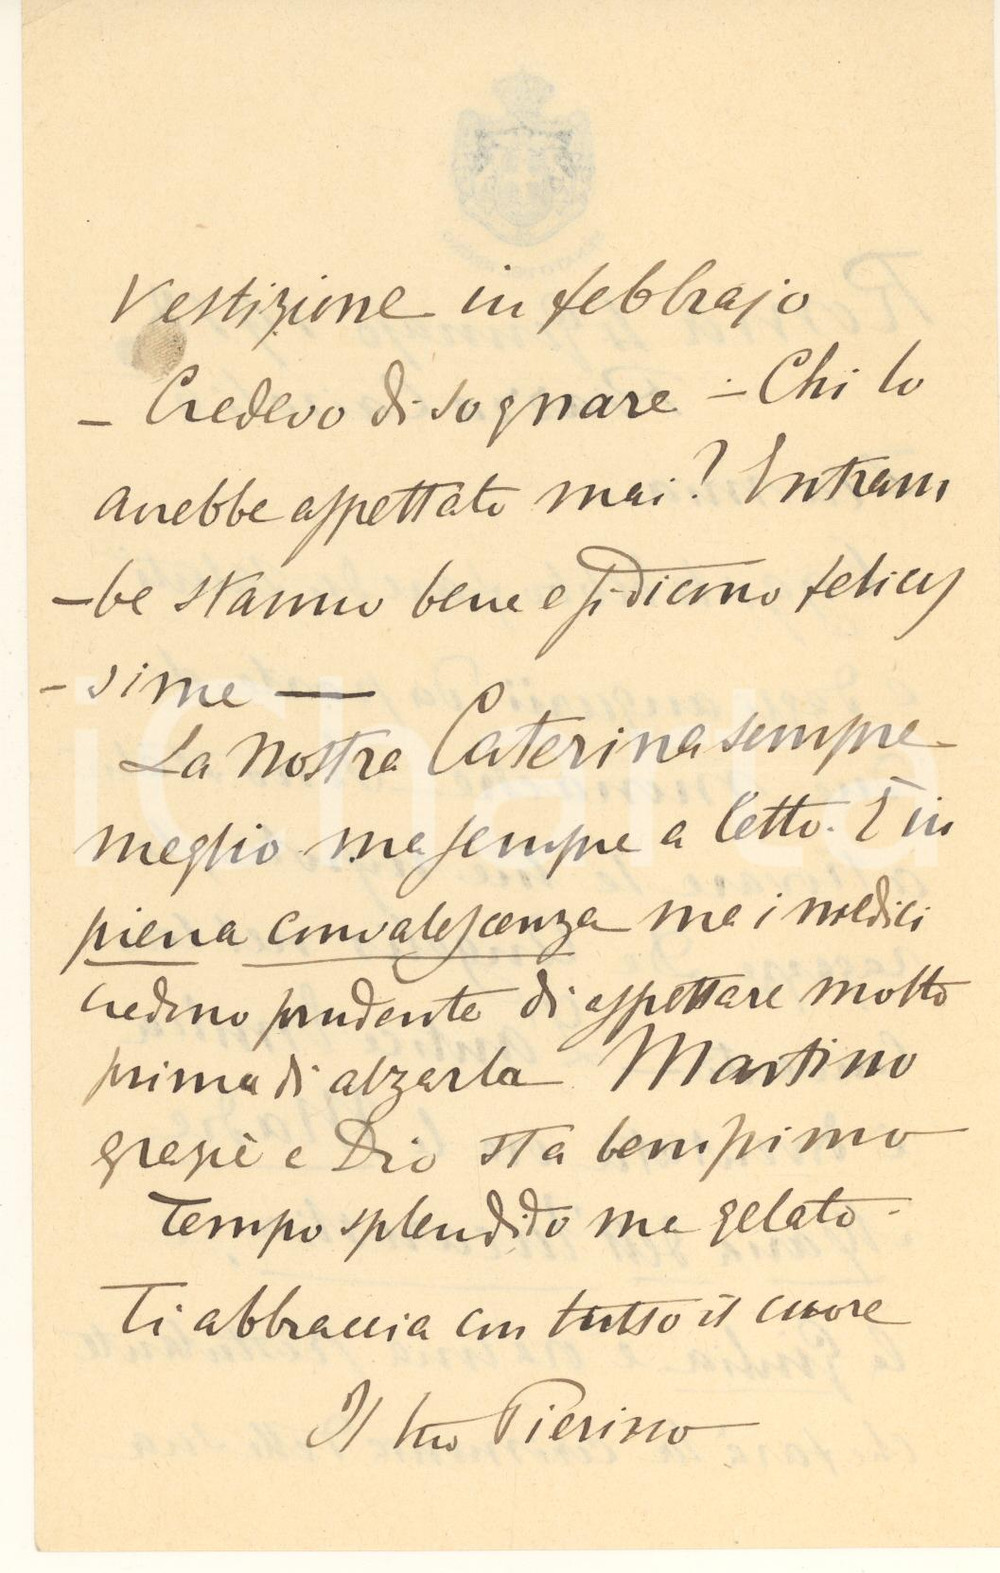 Vestizione in febbrajo
– Credevo di sognare – Chi lo
avrebbe aspettato mai? Entram
–be stanno bene e si dicono felicis
–sime —
La nostra Caterina sempre
meglio ma sempre a letto. È in
piena convalescenza ma i medici
credono prudente di aspettare molto
prima di alzarla Martino
grazie a Dio sta benissimo
Tempo splendido ma gelato –
Ti abbraccia con tutto il cuore
Il tuo Pierino
iCharta